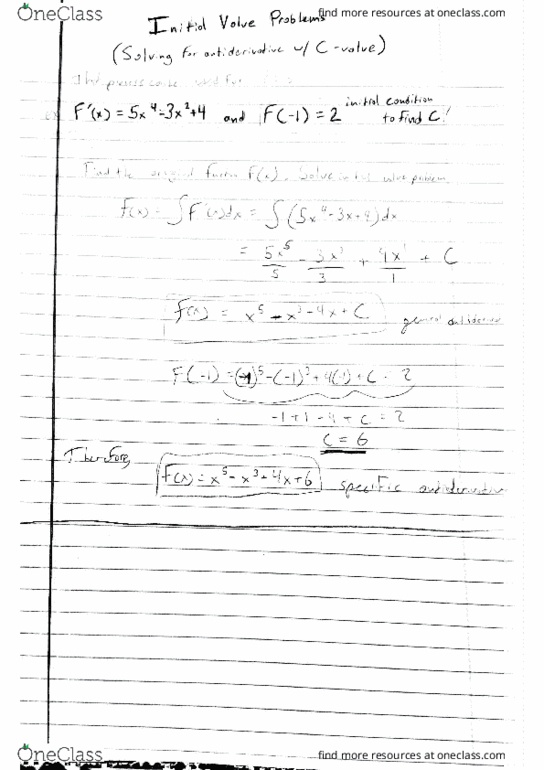 OneClass
find more resources at oneclass.com
Initial Value Problems
(Solving for antiderivative w/ C-value)
F'(x) = 5x⁴-3x²+4 and F(-1) = 2 initial condition to find C!
Find the original F(x). Solve initial value problem
f(x) = ∫F'(x)dx = ∫(5x⁴-3x+4)dx
= 5x⁵/5 - 3x³/3 + 4x¹/1 + C
f(x) = x⁵-x³-4x+C general antiderivative
F(-1) = (-1)⁵-(-1)³+4(-1)+C = 2
-1+1-4+C = 2
C = 6
Therefore,
f(x) = x⁵-x³+4x+6 specific antiderivative
OneClass
find more resources at oneclass.com